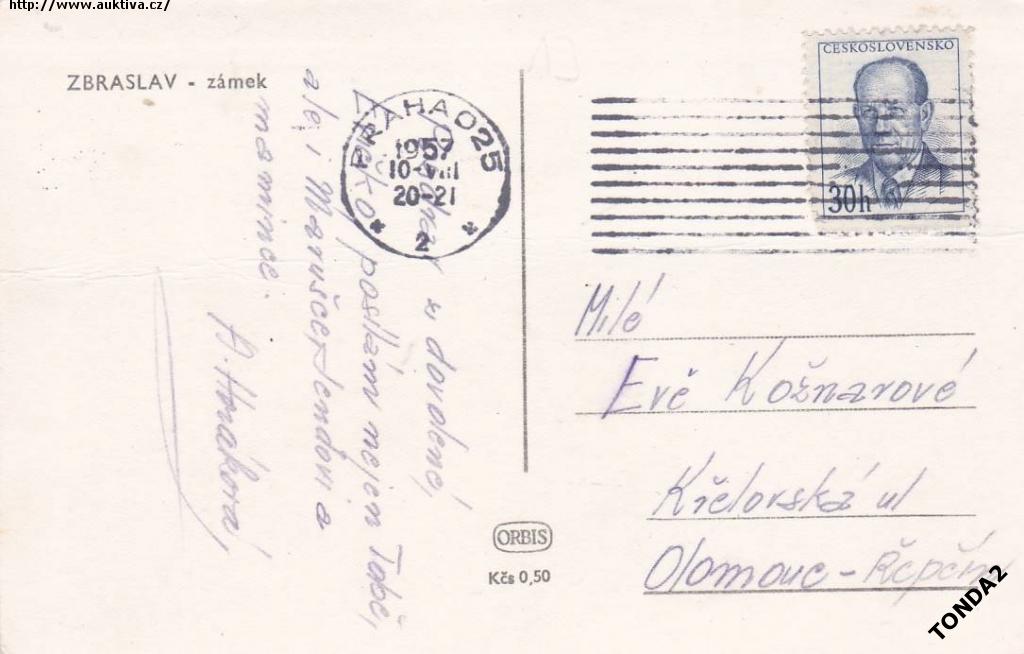 http://www.auktiva.cz/
ZBRASLAV - zámek
PRAHA 025
1957
10-VIII
20-21
2
ČESKOSLOVENSKO
30h
v dovolené,
posílám nejen Tobě,
ale i Marušce, Lendovi a
mamince.
Milé
Evě Kožnarové
Křelovská ul
Olomouc - Řepčín
ORBIS
Kčs 0,50
TONDA2